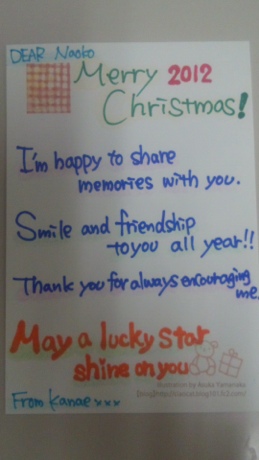 DEAR Naoko
Merry 2012
Christmas!
I'm happy to share
memories with you.
Smile and friendship
to you all year!!
Thank you for always encouraging
me.
May a lucky star
shine on you
From Kanae xxx